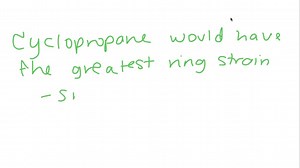 Cyclopropane would have
the greatest ring strain